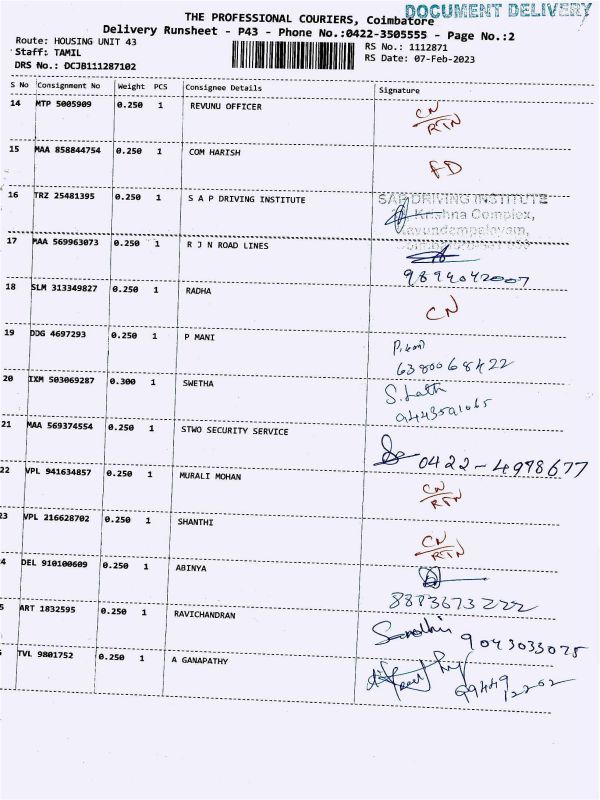 DOCUMENT DELIVERY
THE PROFESSIONAL COURIERS, Coimbatore
Delivery Runsheet - P43 - Phone No.:0422-3505555 - Page No.:2
Route: HOUSING UNIT 43 RS No.: 1112871
Staff: TAMIL RS Date: 07-Feb-2023
DRS No.: DCJB111287102
S No Consignment No Weight PCS Consignee Details Signature
14 MTP 5005909 0.250 1 REVUNU OFFICER CN/RTN
15 MAA 858844754 0.250 1 COM HARISH FD
16 TRZ 25481395 0.250 1 S A P DRIVING INSTITUTE SAP DRIVING INSTITUTE
Krishna Complex,
17 MAA 569963073 0.250 1 R J N ROAD LINES 9894042007
18 SLM 313349827 0.250 1 RADHA CN
19 DDG 4697293 0.250 1 P MANI
6380068422
20 IXM 503069287 0.300 1 SWETHA
21 MAA 569374554 0.250 1 STWO SECURITY SERVICE 0422-4978677
22 VPL 941634857 0.250 1 MURALI MOHAN CN/RTN
23 VPL 216628702 0.250 1 SHANTHI CN/RTN
4 DEL 910100609 0.250 1 ABINYA 8883673222
5 ART 1832595 0.250 1 RAVICHANDRAN 9043033075
TVL 9801752 0.250 1 A GANAPATHY